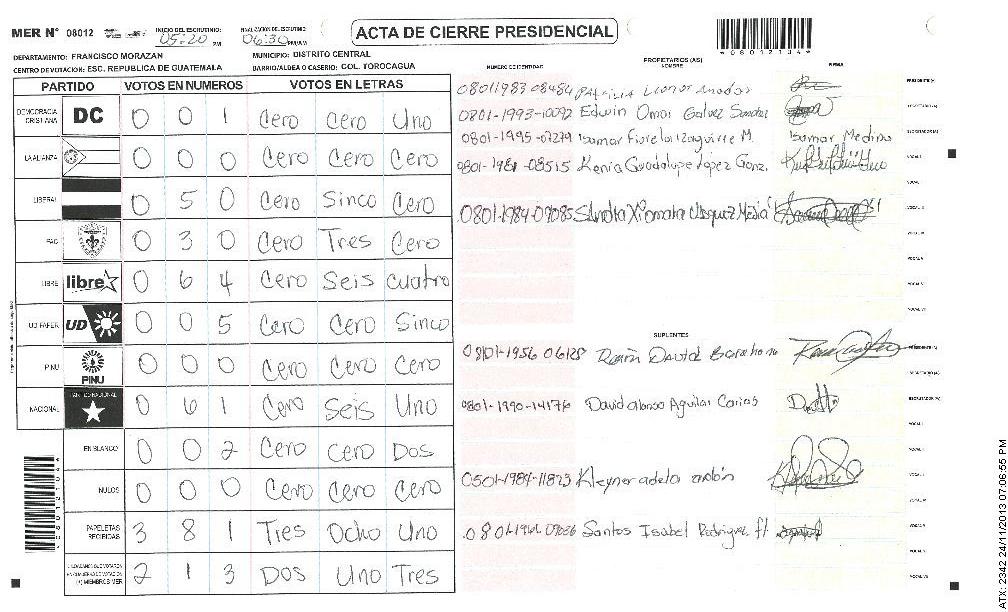 MER Nº 08012
INICIO DEL ESCRUTINIO: 05:20 PM
FINALIZACION DEL ESCRUTINIO: 06:30 PM/AM
ACTA DE CIERRE PRESIDENCIAL
*08012134*
DEPARTAMENTO: FRANCISCO MORAZAN
MUNICIPIO: DISTRITO CENTRAL
CENTRO DE VOTACION: ESC. REPUBLICA DE GUATEMALA
BARRIO/ALDEA O CASERIO: COL. TOROCAGUA
PARTIDO VOTOS EN NUMEROS VOTOS EN LETRAS
DEMOCRACIA CRISTIANA DC 0 0 1 Cero Cero Uno
LA ALIANZA 0 0 0 Cero Cero Cero
LIBERAL 0 5 0 Cero Sinco Cero
PAC 0 3 0 Cero Tres Cero
LIBRE libre 0 6 4 Cero Seis cuatro
UD FAPER UD 0 0 5 Cero Cero Sinco
PINU PINU 0 0 0 Cero Cero Cero
NACIONAL PARTIDO NACIONAL 0 6 1 Cero Seis Uno
EN BLANCO 0 0 2 Cero Cero Dos
NULOS 0 0 0 Cero Cero Cero
PAPELETAS RECIBIDAS 3 8 1 Tres Ocho Uno
CIUDADANOS QUE VOTARON EN CUADERNO DE VOTACION (+) MIEMBROS MER 2 1 3 Dos Uno Tres
NUMERO DE IDENTIDAD
PROPIETARIOS (AS)
NOMBRE
FIRMA
08011983 08484
0801-1993-10092 Edwin Omar Galvez Sanchez
0801-1995-07279 Isamar Fiorela Izaguirre M. Isamar Medina
0801-1981-08515 Kenia Guadalupe Lopez Gonz.
0801-1984-09085
SUPLENTES
0801-1956 06128 Ramón David Barahona
0801-1990-14176 David alonso Aguilar Carias
0501-1984-11823 Kleyner adela
Santos Isabel Rodriguez fl
ATX: 2342 24/11/2013 07:06:55 PM